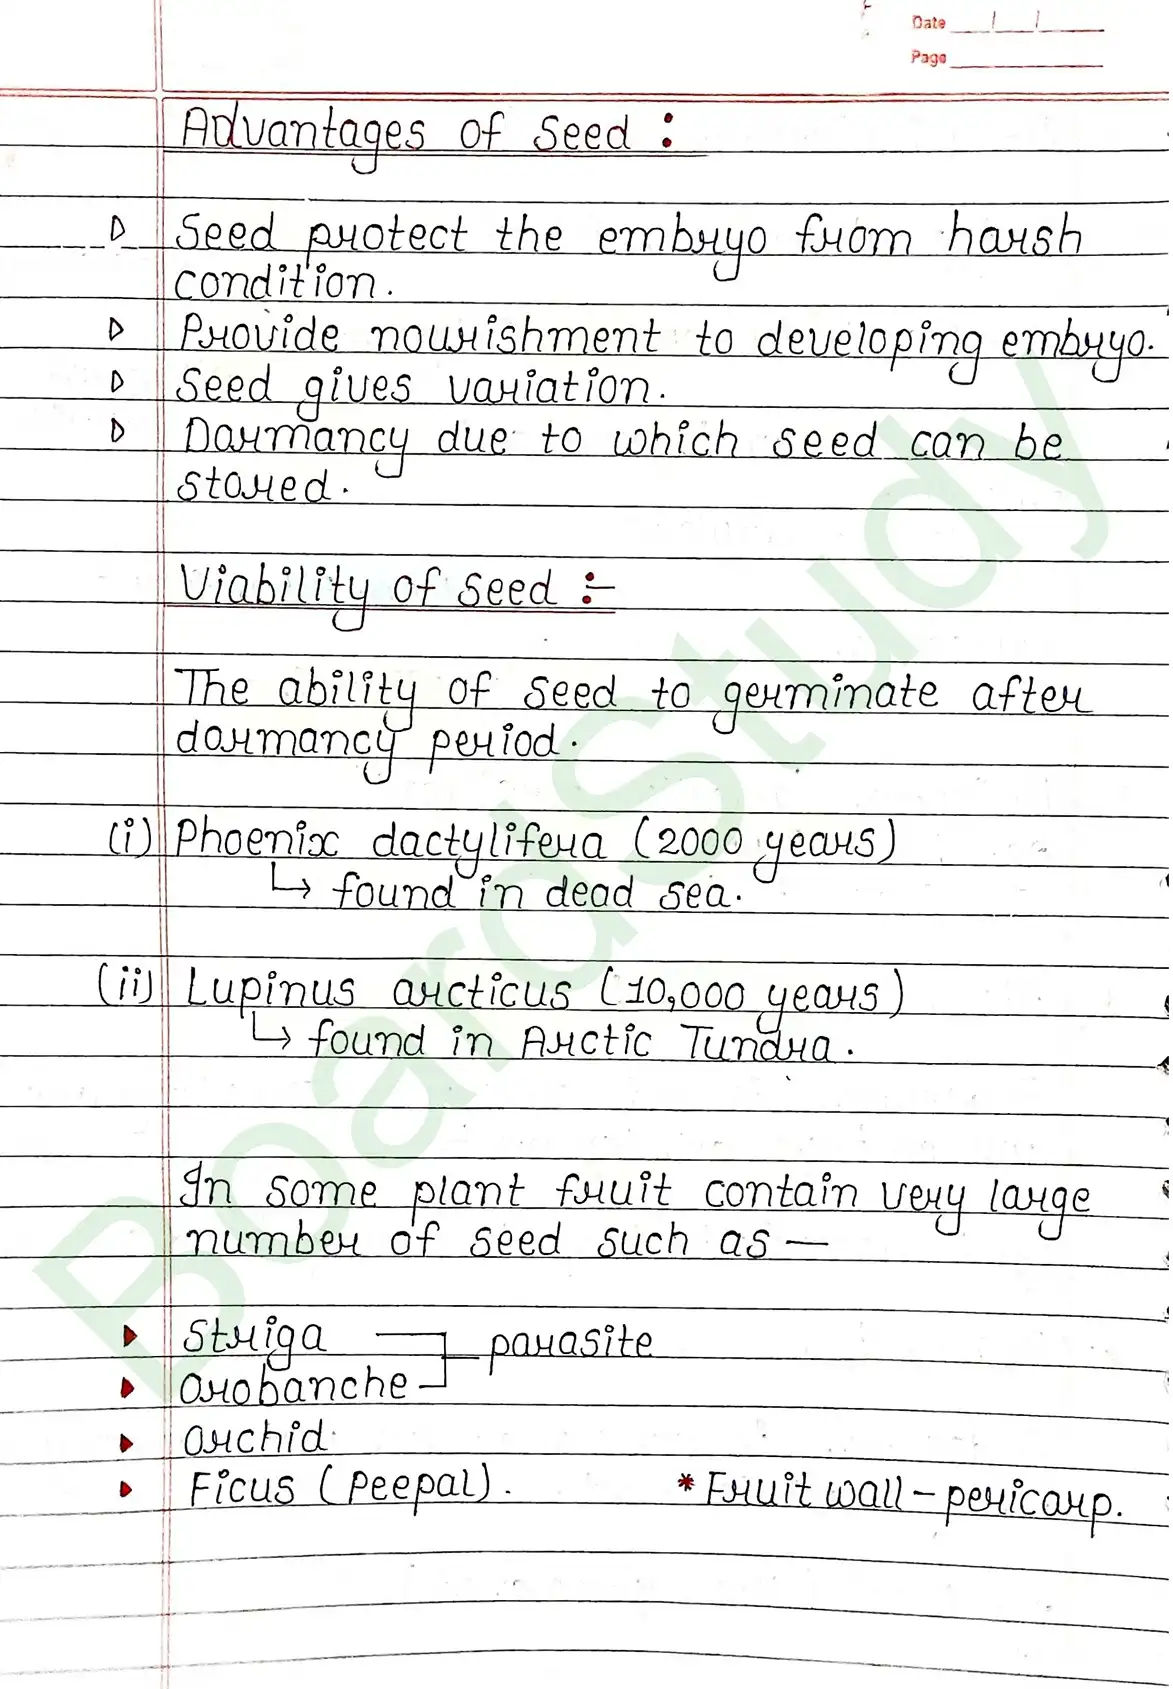 Date
Page
Advantages of seed :
Seed protect the embryo from harsh
condition.
Provide nourishment to developing embryo.
Seed gives variation.
Darmancy due to which seed can be
stored.
Viability of seed :-
The ability of seed to germinate after
dormancy period.
(i) Phoenix dactylifera (2000 years)
↳ found in dead sea.
(ii) Lupinus arcticus (10,000 years)
↳ found in Arctic Tundra.
In some plant fruit contain very large
number of seed such as —
Striga
parasite
orobanche
orchid
Ficus (peepal). * Fruit wall - pericarp.
BoardStudy